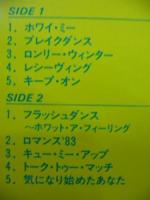 SIDE 1
1. ホワイ・ミー
2. ブレイクダンス
3. ロンリー・ウィンター
4. レシーヴィング
5. キープ・オン
SIDE 2
1. フラッシュダンス
〜ホワット・ア・フィーリング
2. ロマンス'83
3. キュー・ミー・アップ
4. トーク・トゥー・マッチ
5. 気になり始めたあなた